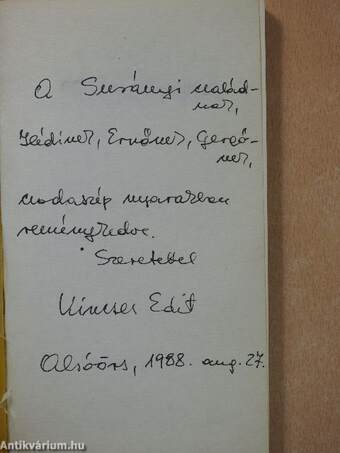 A Surányi család-
nak,
Ildinek, Ernőnek, Gergő-
nek,
csodaszép nyarakban
reménykedve.
Szeretettel
Kincses Edit
Alsóörs, 1988. aug. 27.
Antikvárium.hu